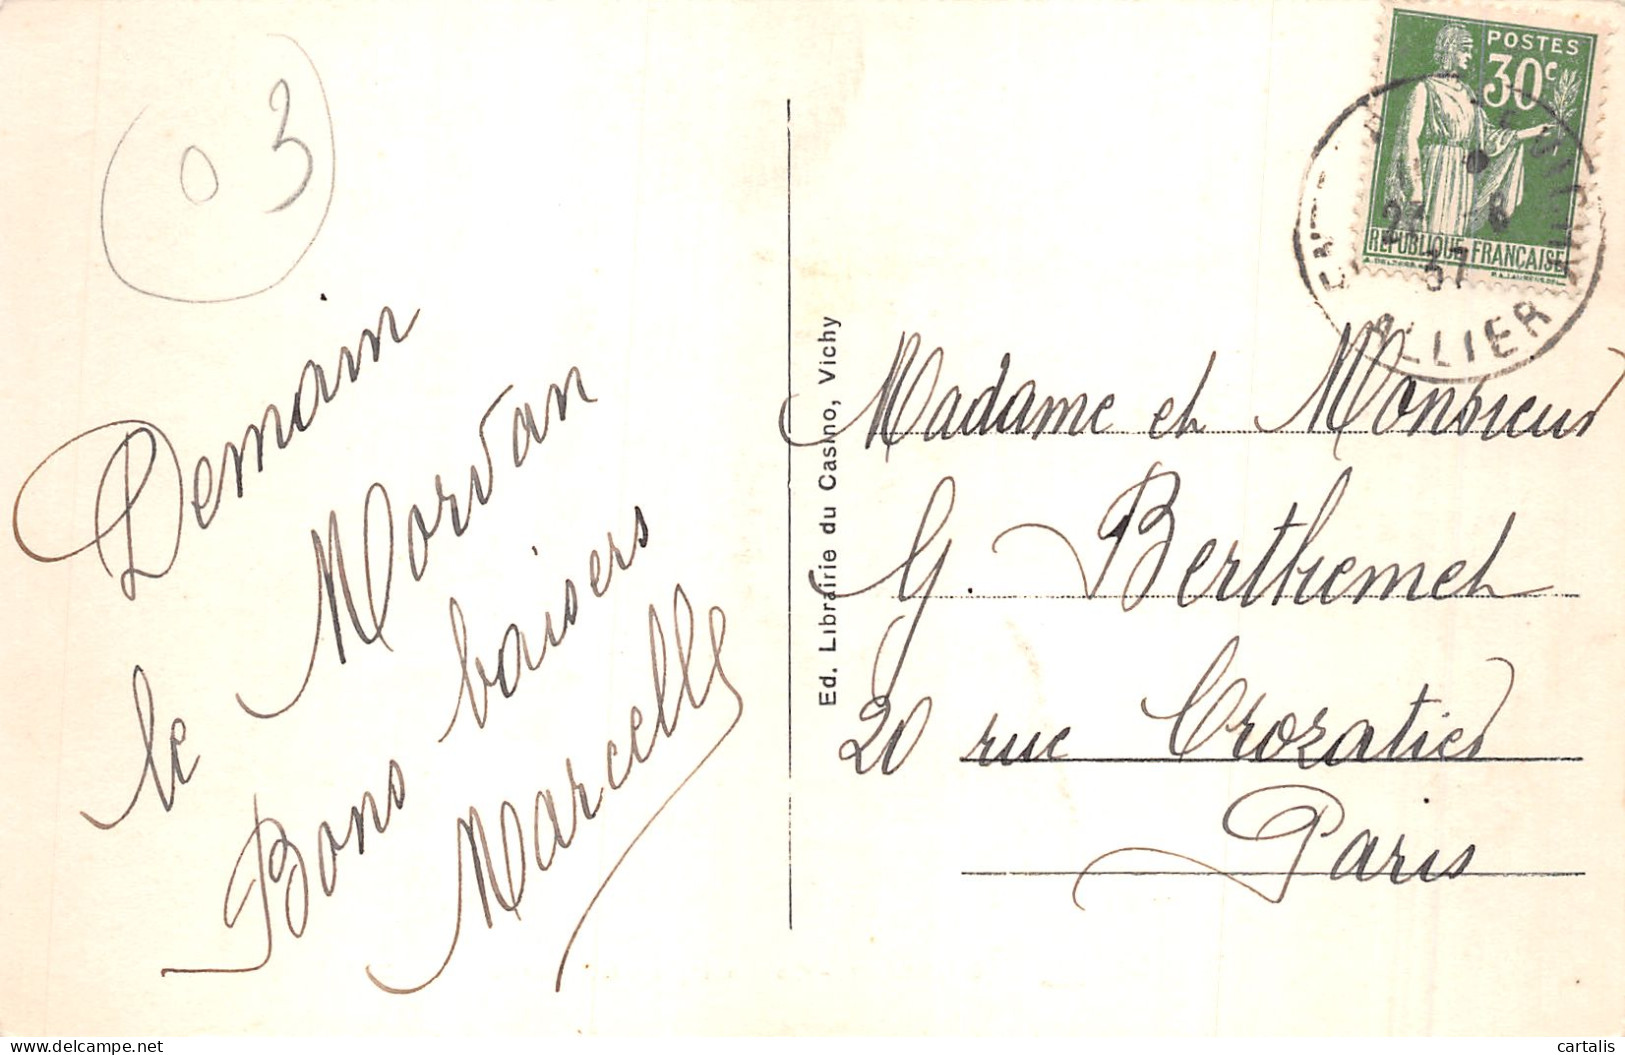 03
Demain
le Morvan
Bons baisers
Marcelle
Ed. Librairie du Casino, Vichy
POSTES
30c
REPUBLIQUE FRANÇAISE
37
ALLIER
Madame et Monsieur
G. Berthemet
20 rue Crozatier
Paris
delcampe.net
cartalis